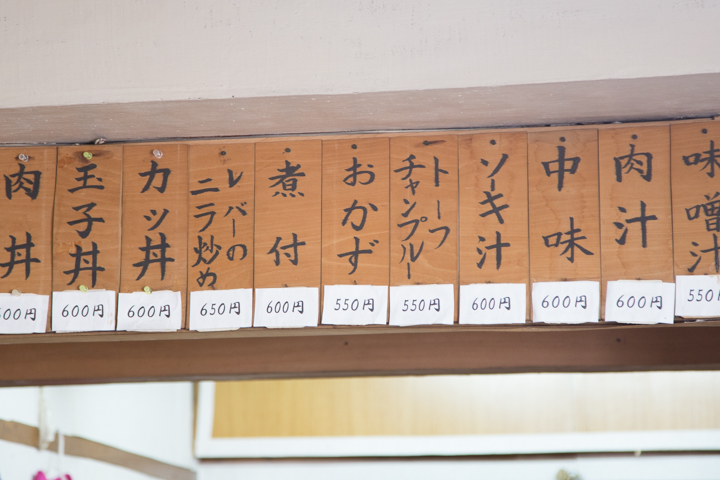 味噌汁
550
肉汁
600円
中味
600円
ソーキ汁
600円
トーフ
チャンプルー
550円
おかず
550円
煮付
600円
レバーの
ニラ炒め
650円
カツ丼
600円
玉子丼
600円
肉丼
600円